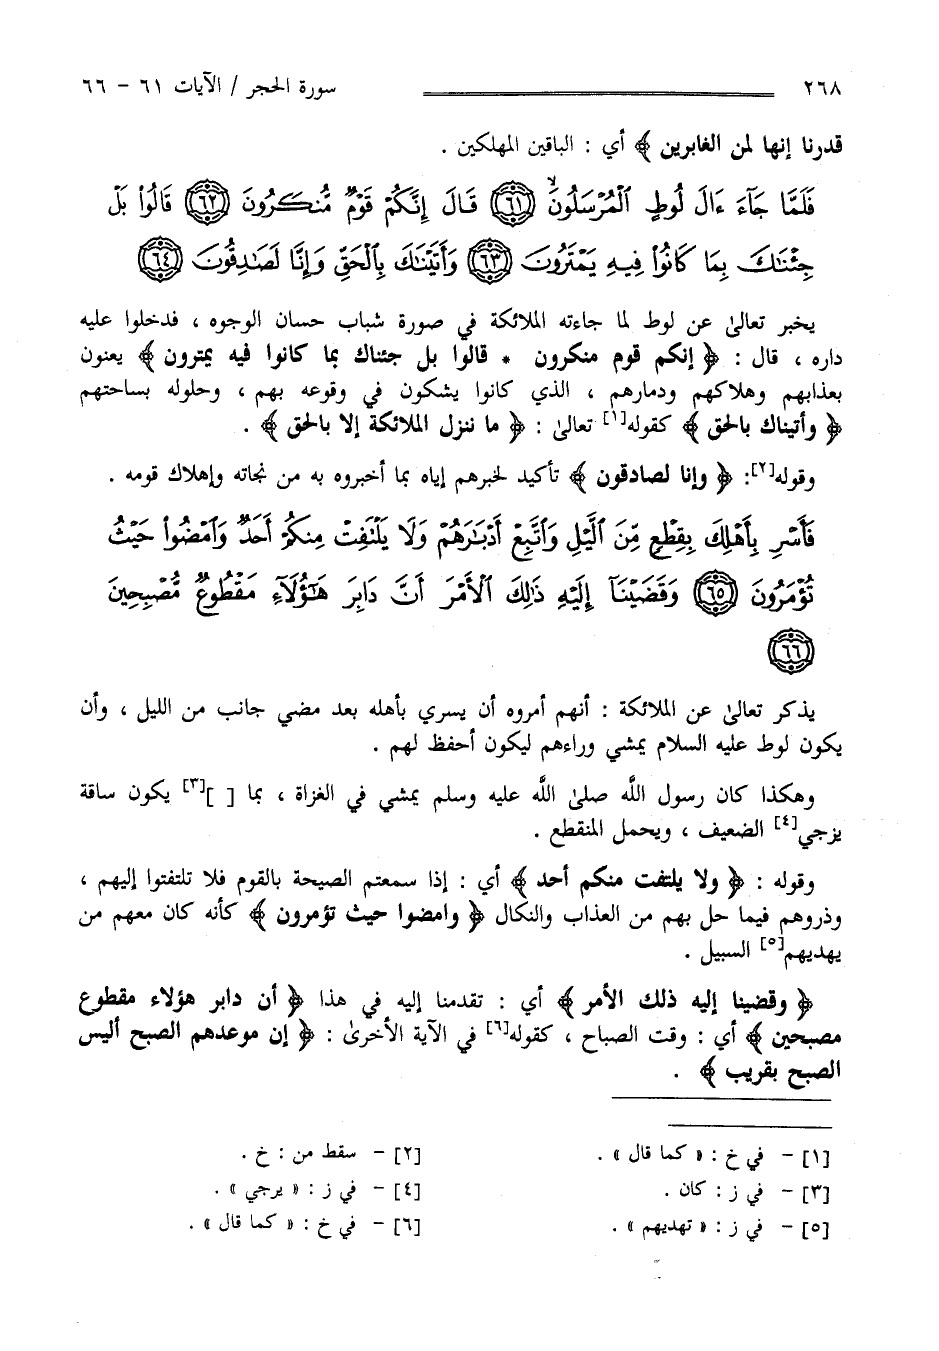 ٢٦٨ سورة الحجر / الآيات ٦١ - ٦٦
قدرنا إنها لمن الغابرين ﴾ أي : الباقين المهلكين .
فَلَمَّا جَآءَ ءَالَ لُوطٍ ٱلْمُرْسَلُونَ ﴿٦١﴾ قَالَ إِنَّكُمْ قَوْمٌ مُّنكَرُونَ ﴿٦٢﴾ قَالُوا۟ بَلْ
جِئْنَٰكَ بِمَا كَانُوا۟ فِيهِ يَمْتَرُونَ ﴿٦٣﴾ وَأَتَيْنَٰكَ بِٱلْحَقِّ وَإِنَّا لَصَٰدِقُونَ ﴿٦٤﴾
يخبر تعالىٰ عن لوط لما جاءته الملائكة في صورة شباب حسان الوجوه ، فدخلوا عليه
داره ، قال : ﴿ إنكم قوم منكرون * قالوا بل جئناك بما كانوا فيه يمترون ﴾ يعنون
بعذابهم وهلاكهم ودمارهم ، الذي كانوا يشكون في وقوعه بهم ، وحلوله بساحتهم
﴿ وأتيناك بالحق ﴾ كقوله[١] تعالىٰ : ﴿ ما ننزل الملائكة إلا بالحق ﴾ .
وقوله[٢]: ﴿ وإنا لصادقون ﴾ تأكيد لخبرهم إياه بما أخبروه به من نجاته وإهلاك قومه .
فَأَسْرِ بِأَهْلِكَ بِقِطْعٍ مِّنَ ٱلَّيْلِ وَٱتَّبِعْ أَدْبَٰرَهُمْ وَلَا يَلْتَفِتْ مِنكُمْ أَحَدٌ وَٱمْضُوا۟ حَيْثُ
تُؤْمَرُونَ ﴿٦٥﴾ وَقَضَيْنَآ إِلَيْهِ ذَٰلِكَ ٱلْأَمْرَ أَنَّ دَابِرَ هَٰٓؤُلَآءِ مَقْطُوعٌ مُّصْبِحِينَ
﴿٦٦﴾
يذكر تعالىٰ عن الملائكة : أنهم أمروه أن يسري بأهله بعد مضي جانب من الليل ، وأن
يكون لوط عليه السلام يمشي وراءهم ليكون أحفظ لهم .
وهكذا كان رسول اللَّه صلىٰ اللَّه عليه وسلم يمشي في الغزاة ، بما [ ][٣] يكون ساقة
يزجي[٤] الضعيف ، ويحمل المنقطع .
وقوله : ﴿ ولا يلتفت منكم أحد ﴾ أي : إذا سمعتم الصيحة بالقوم فلا تلتفتوا إليهم ،
وذروهم فيما حل بهم من العذاب والنكال ﴿ وامضوا حيث تؤمرون ﴾ كأنه كان معهم من
يهديهم[٥] السبيل .
﴿ وقضينا إليه ذلك الأمر ﴾ أي : تقدمنا إليه في هذا ﴿ أن دابر هؤلاء مقطوع
مصبحين ﴾ أي : وقت الصباح ، كقوله[٦] في الآية الأخرىٰ : ﴿ إن موعدهم الصبح أليس
الصبح بقريب ﴾ .
[١] - في خ : « كما قال » . [٢] - سقط من : خ .
[٣] - في ز : كان . [٤] - في ز : « يرجي » .
[٥] - في ز : « تهديهم » . [٦] - في خ : « كما قال » .